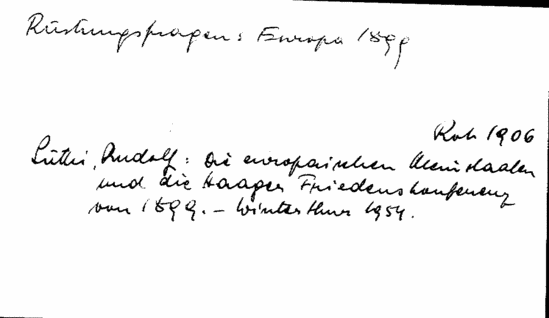 Rüstungsfragen: Europa 1899
Roh 1906
Lüthi, Rudolf: Die europäischen Kleinstaaten
und die Haager Friedenskonferenz
von 1899. - Winterthur 1954.